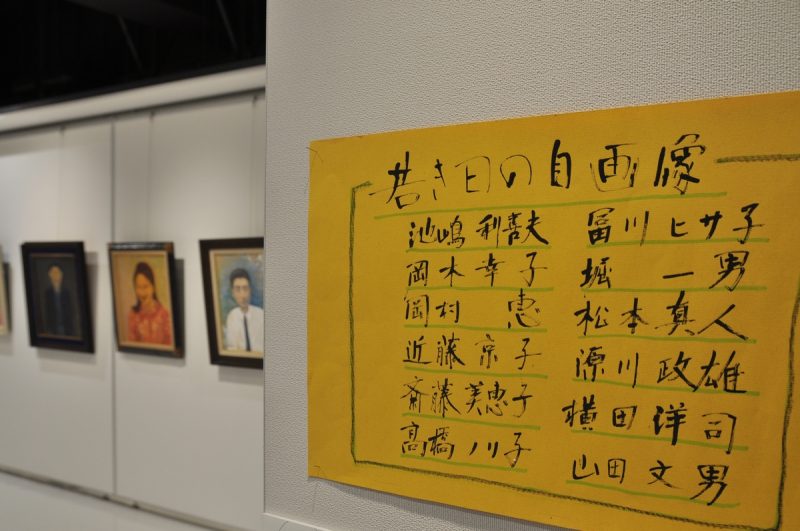 若き日の自画像
池嶋利喜夫
岡本幸子
岡村 恵
近藤京子
斎藤美恵子
高橋ノリ子
冨川ヒサ子
堀 一男
松本真人
源川政雄
横田洋司
山田文男